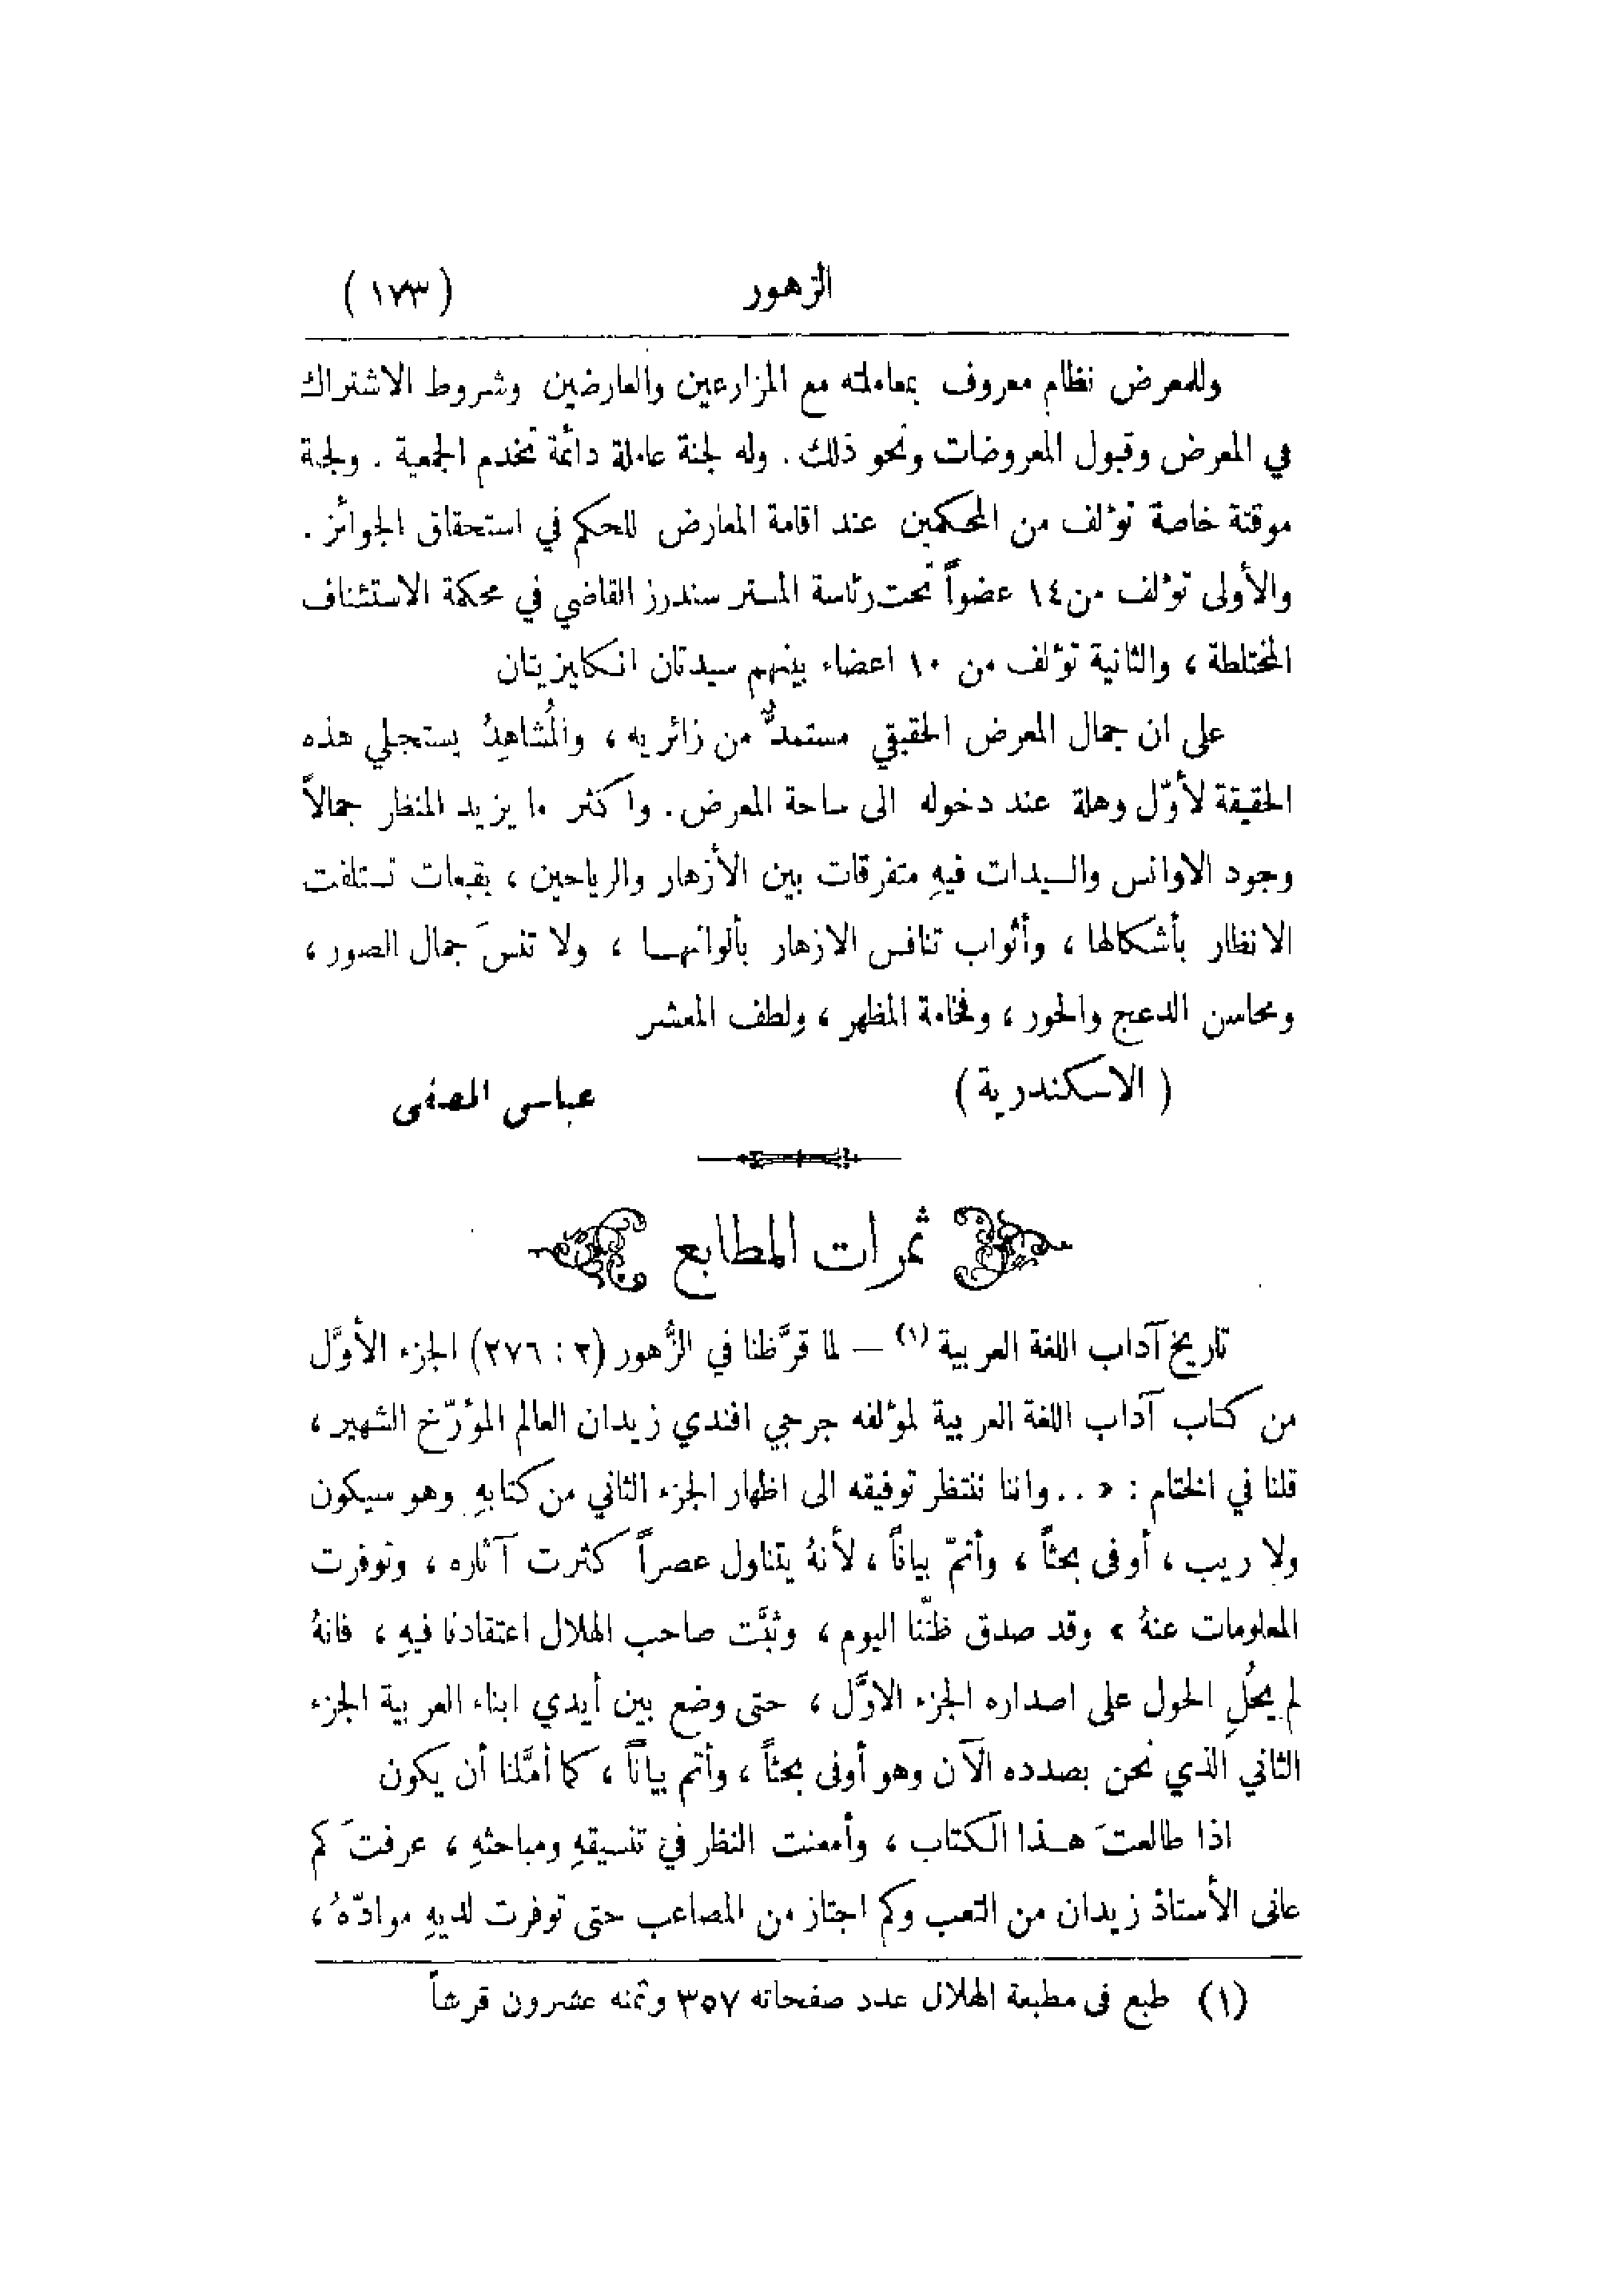 الزهور
( ١٧٣ )
وللمعرض نظام معروف بمعاملته مع المزارعين والعارضين وشروط الاشتراك
في المعرض وقبول المعروضات ونحو ذلك . وله لجنة عاملة دائمة تخدم الجمعية . ولجنة
موقتة خاصة تؤلف من المحكمين عند اقامة المعارض للحكم في استحقاق الجوائز .
والأولى تؤلف من ١٤ عضواً تحت رئاسة المستر سندرز القاضي في محكمة الاستئناف
المختلطة ، والثانية تؤلف من ١٠ اعضاء بينهم سيدتان انكليزيتان
على ان جمال المعرض الحقيقي مستمدٌّ من زائريه ، والمُشاهِدُ يستجلي هذه
الحقيقة لأوّل وهلة عند دخوله الى ساحة المعرض . واكثر ما يزيد المنظر جمالاً
وجود الاوانس والسيدات فيهِ متفرقات بين الأزهار والرياحين ، بقبعات تستلفت
الانظار بأشكالها ، وأثواب تنافس الازهار بألوانهـا ، ولا تنسَ جمال الصور ،
ومحاسن الدعج والحور ، وفخامة المظهر ، ولطف المعشر
( الاسكندرية ) عباس المصفى
ثمرات المطابع
تاريخ آداب اللغة العربية (١) — لما قرَّظنا في الزُّهور (٢ : ٢٧٦) الجزء الأوَّل
من كتاب آداب اللغة العربية لمؤلفه جرجي افندي زيدان العالم المؤرّخ الشهير ،
قلنا في الختام : « . . واننا ننتظر توفيقه الى اظهار الجزء الثاني من كتابهِ وهو سيكون
ولا ريب ، أوفى بحثاً ، وأتمّ بياناً ، لأنهُ يتناول عصراً كثرت آثاره ، وتوفرت
المعلومات عنهُ » وقد صدق ظنّنا اليوم ، وثبَّت صاحب الهلال اعتقادنا فيهِ ، فانهُ
لم يحُلِ الحول على اصداره الجزء الاوَّل ، حتى وضع بين أيدي ابناء العربية الجزء
الثاني الذي نحن بصدده الآن وهو أوفى بحثاً ، وأتم بياناً ، كما أمَّلنا أن يكون
اذا طالعتَ هـذا الكتاب ، وأمعنت النظر في تنسيقهِ ومباحثهِ ، عرفتَ كم
عانى الأستاذ زيدان من التعب وكم اجتاز من المصاعب حتى توفرت لديهِ موادّهُ ،
(١) طبع فى مطبعة الهلال عدد صفحاته ٣٥٧ وثمنه عشرون قرشاً